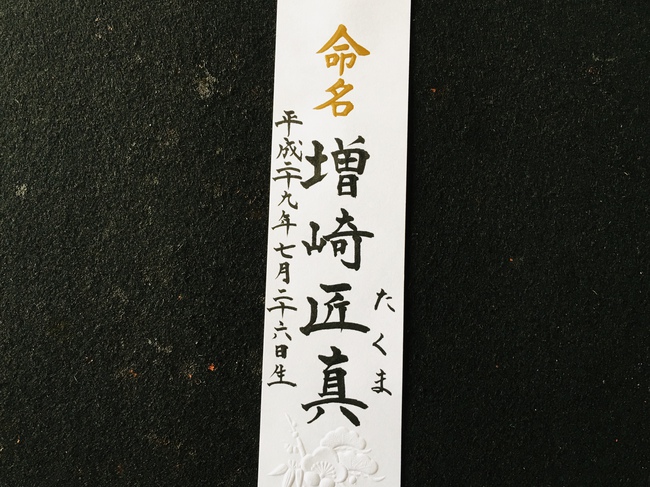 命名
たくま
増崎匠真
平成二十九年七月二十六日生